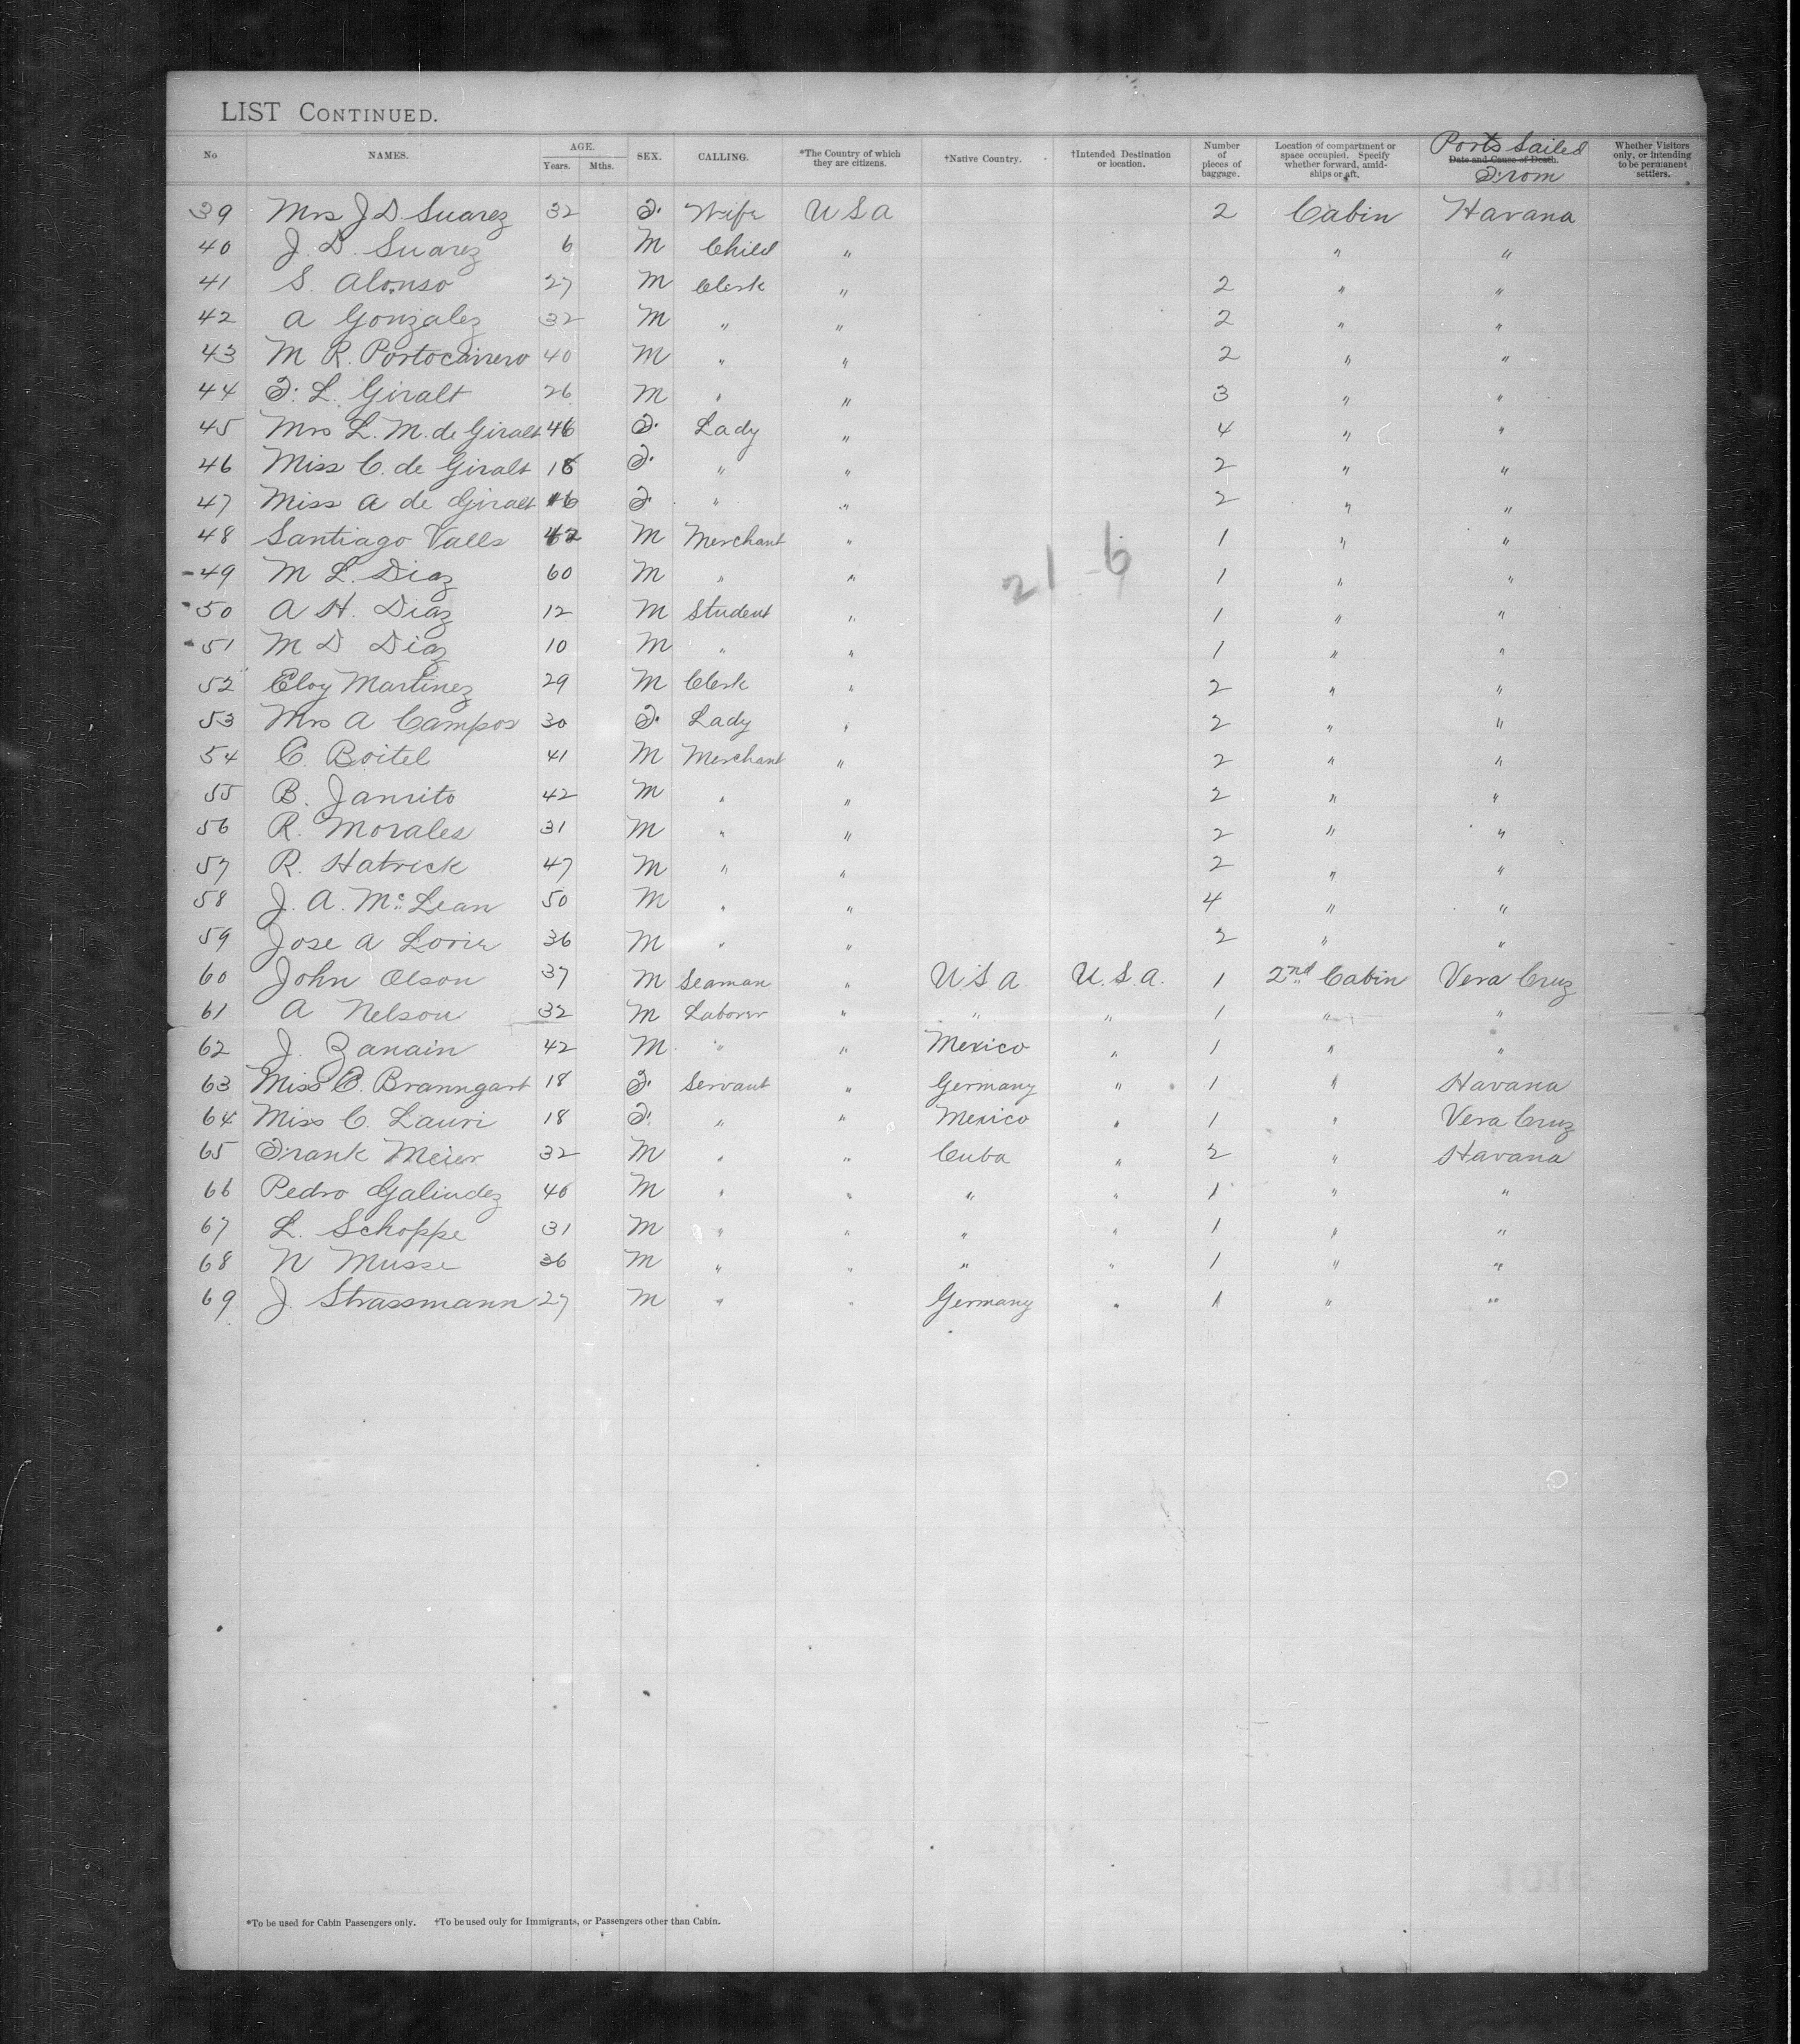 LIST CONTINUED.
No NAMES. AGE. Years. Mths. SEX. CALLING. *The Country of which they are citizens. †Native Country. †Intended Destination or location. Number of pieces of baggage. Location of compartment or space occupied. Specify whether forward, amidships or aft. Date and Cause of Death. Ports Sailed From Whether Visitors only, or intending to be permanent settlers.
39 Mrs J D. Suarez 32 F. Wife U S A 2 Cabin Havana
40 J. D. Suarez 6 M Child " " "
41 S. Alonso 27 M Clerk " 2 " "
42 A Gonzalez 32 M " " 2 " "
43 M R. Portocarrero 40 M " " 2 " "
44 F. L. Giralt 26 M " " 3 " "
45 Mrs L. M. de Giralt 46 F. Lady " 4 " "
46 Miss C. de Giralt 18 F. " " 2 " "
47 Miss A de Giralt 16 F. " " 2 " "
48 Santiago Valls 42 M Merchant " 1 " "
49 M L. Diaz 60 M " " 1 " "
21 6
50 A H. Diaz 12 M Student " 1 " "
51 M D Diaz 10 M " " 1 " "
52 Eloy Martinez 29 M Clerk " 2 " "
53 Mrs A Campos 30 F. Lady " 2 " "
54 C. Boitel 41 M Merchant " 2 " "
55 B. 42 M " " 2 " "
56 R. Morales 31 M " " 2 " "
57 R. Hatrick 47 M " " 2 " "
58 J. A. Mc Lean 50 M " " 4 " "
59 Jose A 36 M " " 2 " "
60 John Olson 37 M Seaman " U S A U.S.A. 1 2nd Cabin Vera Cruz
61 A Nelson 32 M Laborer " " " 1 " "
62 J. Zanain 42 M " " Mexico " 1 " "
63 Miss C. Branngart 18 F. Servant " Germany " 1 " Havana
64 Miss C. Lauri 18 F. " " Mexico " 1 " Vera Cruz
65 Frank Meier 32 M " " Cuba " 2 " Havana
66 Pedro Galindez 40 M " " " " 1 " "
67 L. Schoppe 31 M " " " " 1 " "
68 N Musse 36 M " " " " 1 " "
69 J. Strassmann 27 M " " Germany " 1 " "
*To be used for Cabin Passengers only. †To be used only for Immigrants, or Passengers other than Cabin.